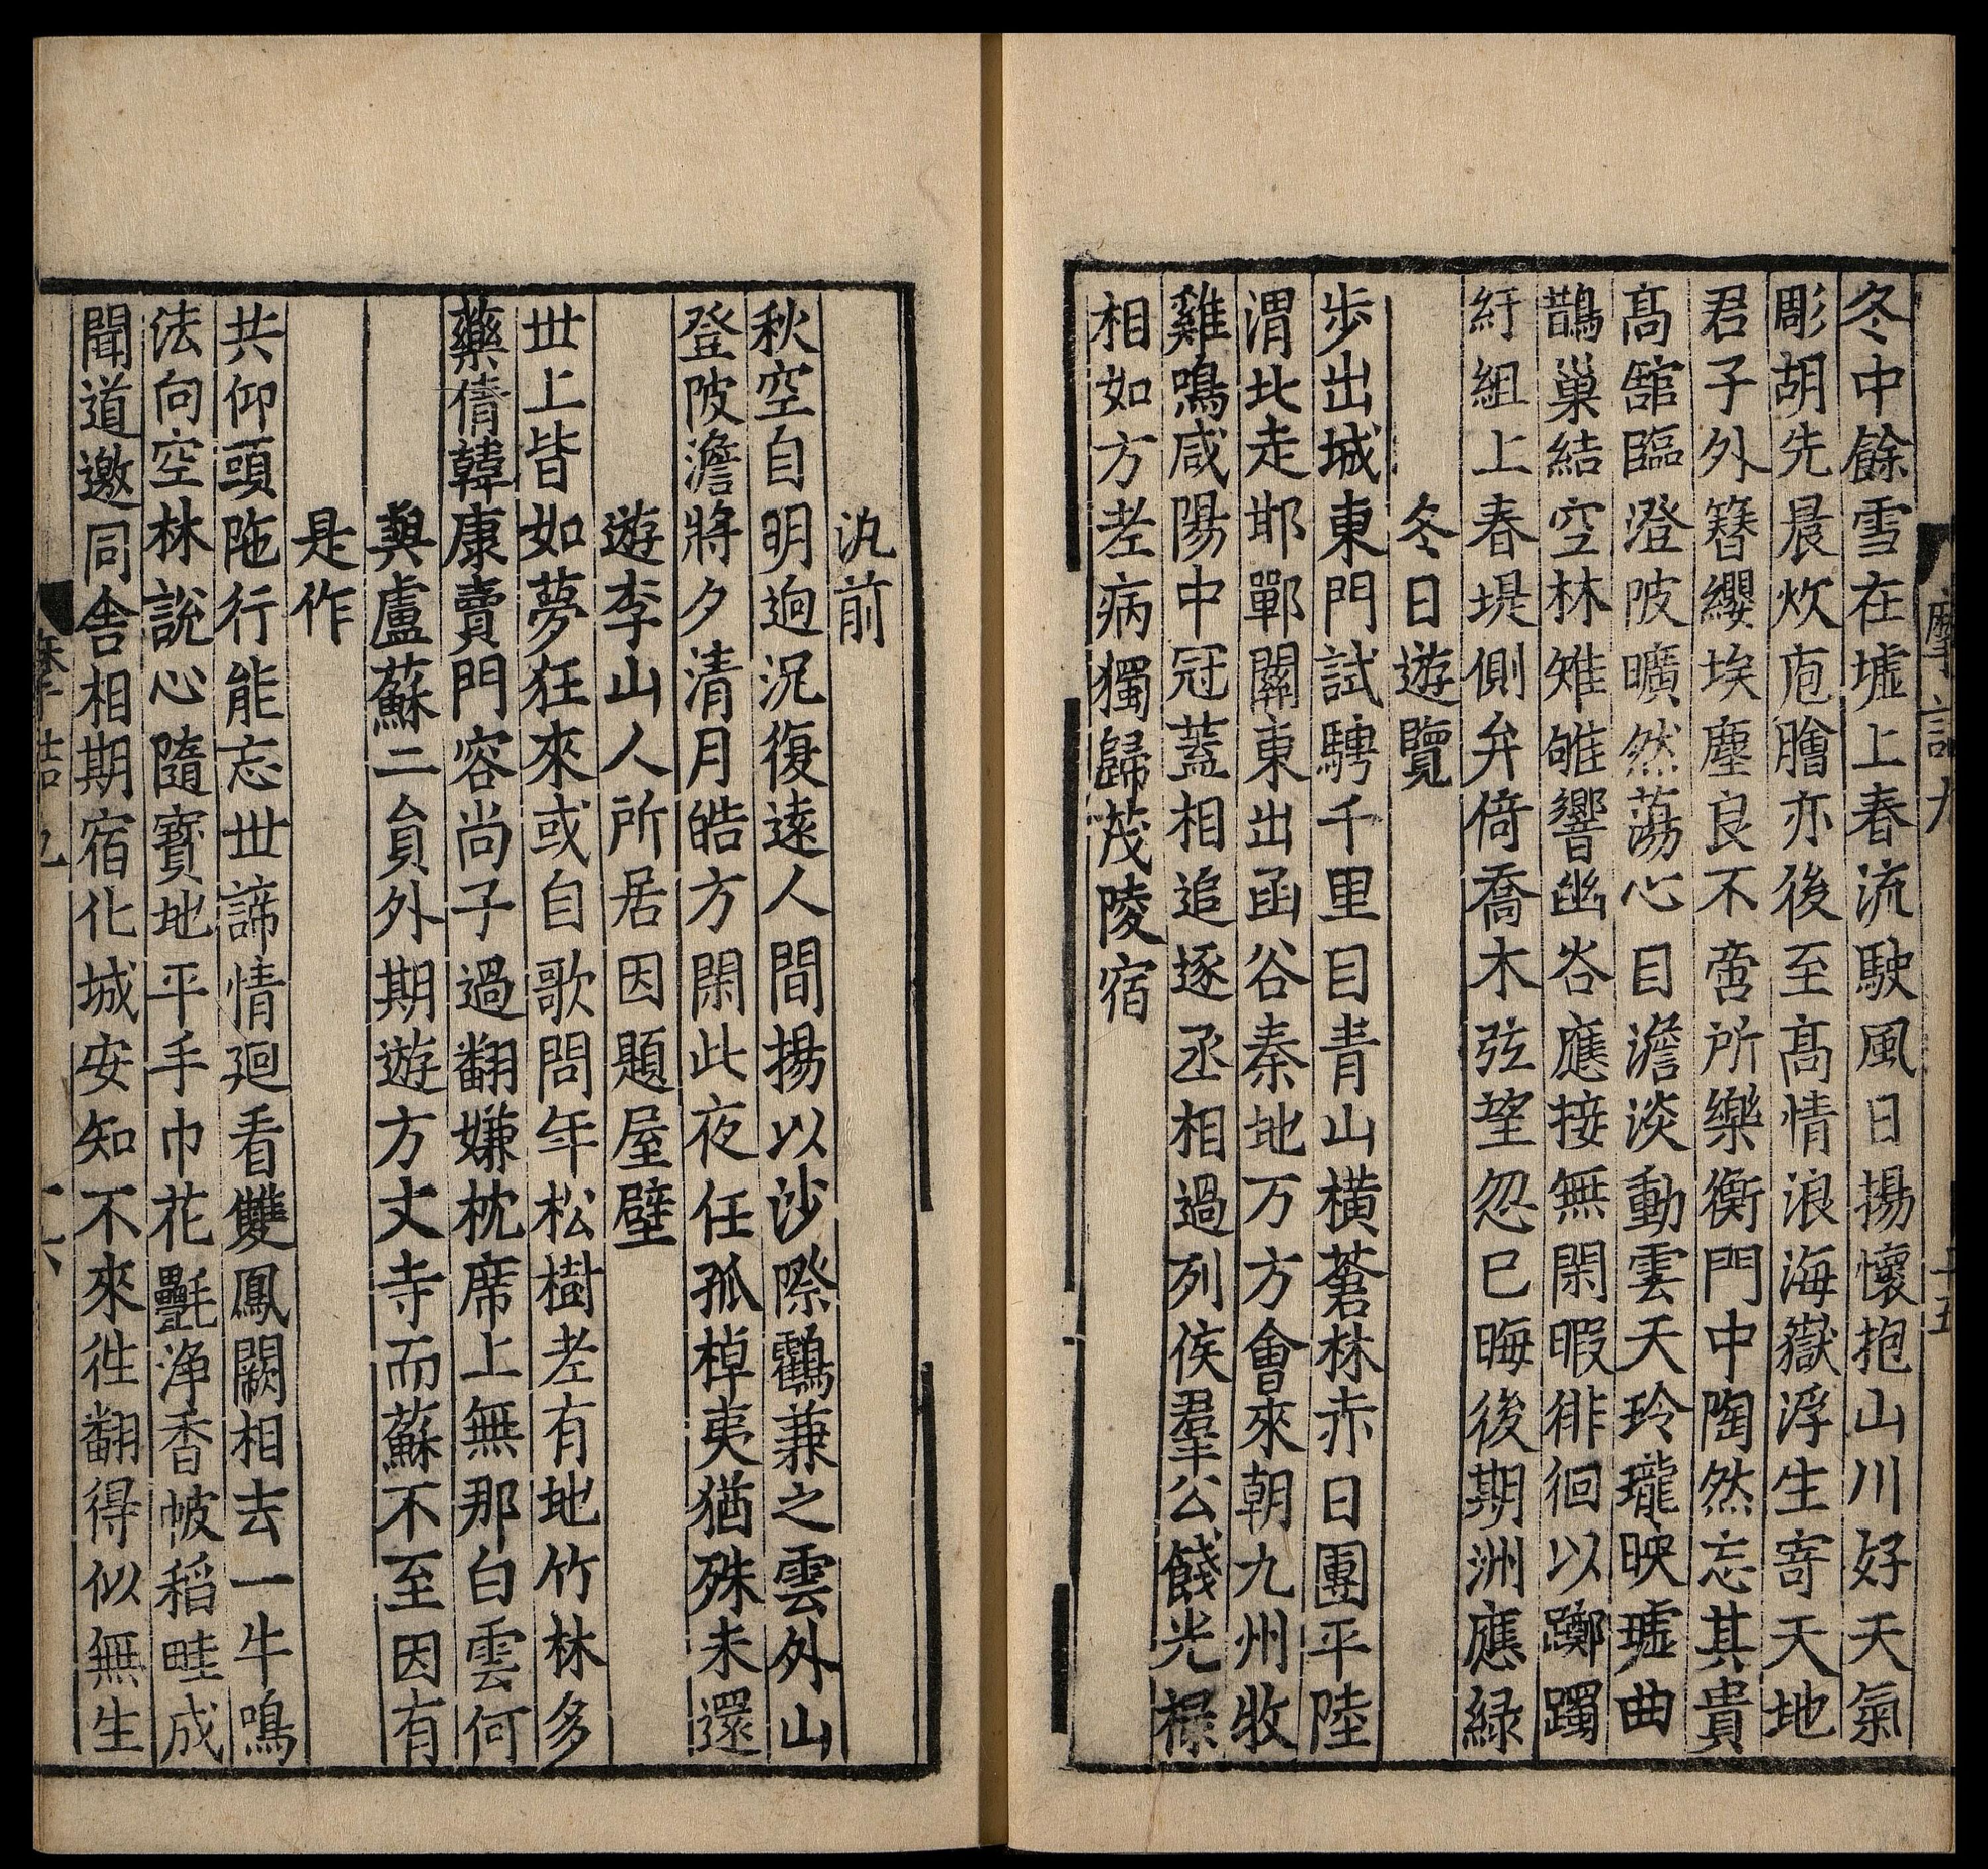 冬中餘雪在墟上春流駛風日揚懷抱山川好天氣
彫胡先晨炊庖膾亦後至高情浪海嶽浮生寄天地
君子外簪纓埃塵良不啻所樂衡門中陶然忘其貴
高館臨澄陂曠然蕩心目澹淡動雲天玲瓏映墟曲
鵲巢結空林雉雊響幽谷應接無閑暇徘徊以躑躅
紆組上春堤側弁倚喬木弦望忽已晦後期洲應綠
冬日遊覽
步出城東門試騁千里目青山橫蒼林赤日團平陸
渭北走邯鄲關東出函谷秦地万方會來朝九州牧
雞鳴咸陽中冠蓋相追逐丞相過列侯羣公餞光祿
相如方老病獨歸茂陵宿
汎前
秋空自明迥況復遠人間揚以沙際鸖兼之雲外山
登陂澹將夕清月皓方閑此夜任孤棹夷猶殊未還
遊李山人所居因題屋壁
世上皆如夢狂來或自歌問年松樹老有地竹林多
藥倩韓康賣門容尚子過翻嫌枕席上無那白雲何
與盧蘇二員外期遊方丈寺而蘇不至因有
是作
共仰頭陁行能忘世諦情迴看雙鳳闕相去一牛鳴
法向空林說心隨寶地平手巾花氎淨香帔稻畦成
聞道邀同舍相期宿化城安知不來往翻得似無生